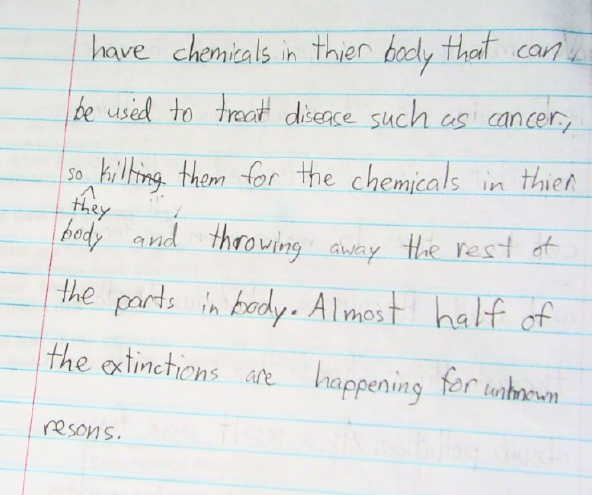 have chemicals in thier body that can
be used to treat disease such as cancer,
so they kill them for the chemicals in thier
body and throwing away the rest of
the parts in body. Almost half of
the extinctions are happening for unknown
resons.